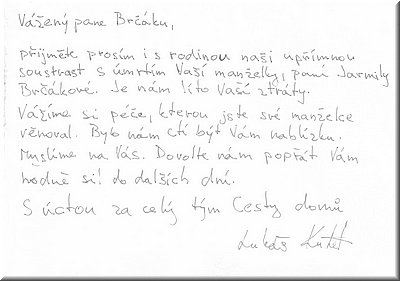 Vážený pane Brčáku,
přijměte prosím i s rodinou naši upřímnou
soustrast s úmrtím Vaší manželky, paní Jarmily
Brčákové. Je nám líto Vaší ztráty.
Vážíme si péče, kterou jste své manželce
věnoval. Bylo nám ctí být Vám nablízku.
Myslíme na Vás. Dovolte nám popřát Vám
hodně sil do dalších dní.
S úctou za celý tým Cesty domů
Lukáš